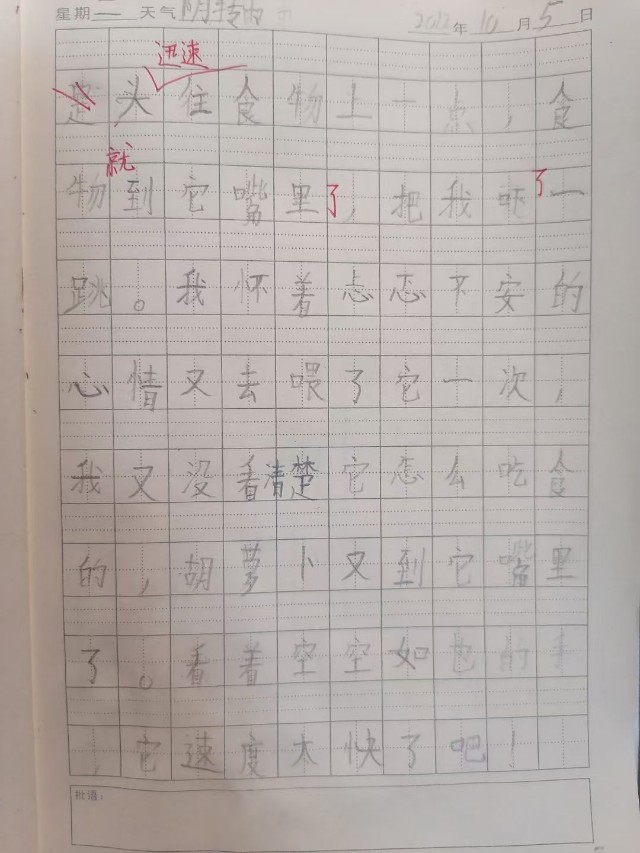 星期二 天气 阴转雨 2022年10月5日
迅速
头往食物上一点,食
就
物到它嘴里了,把我吓了一
跳。我怀着忐忑不安的
心情又去喂了它一次,
我又没看清楚它怎么吃食
的,胡萝卜又到它嘴里
了。看着空空如也的手
,它速度太快了吧!
批语: